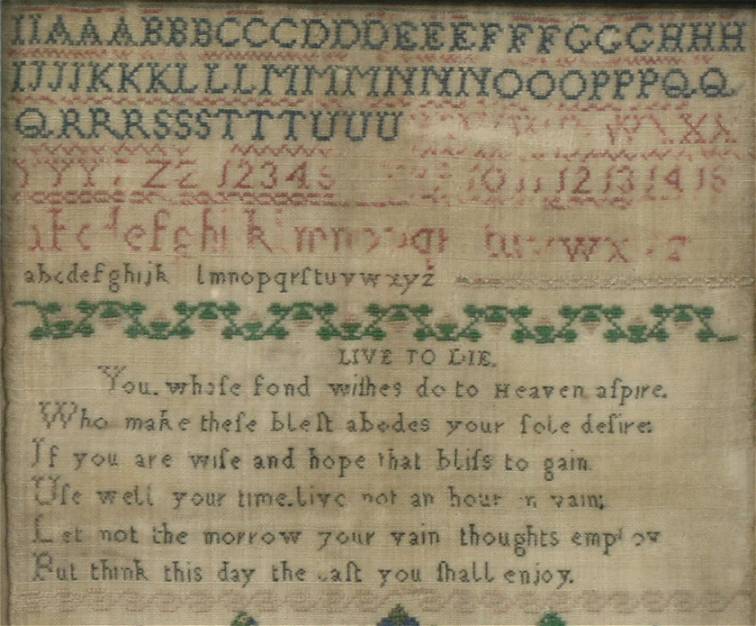 IIAAABBBCCCDDDEEEFFFGGGHHH
IJJJKKKLLLMMMNNNOOOPPPQQ
QRRRSSSTTTUUU
YYY ZZ 12345 10 11 12 13 14 15
abcdefghijk lmnopqrſtuvwxyz
LIVE TO DIE.
You. whoſe fond wiſhes do to Heaven aſpire.
Who make theſe bleſt abodes your ſole deſire:
If you are wiſe and hope that bliſs to gain.
Uſe well your time.live not an hour in vain;
Let not the morrow your vain thoughts employ
But think this day the laſt you ſhall enjoy.